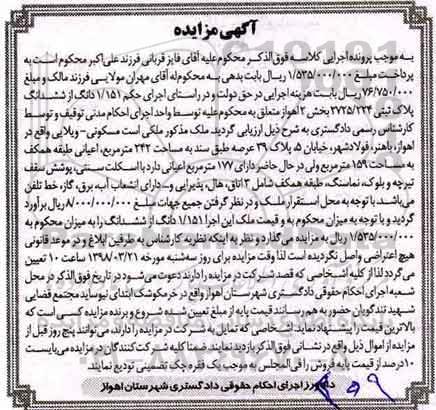 آگهی مزایده
به موجب پرونده اجرایی کلاسه فوق‌الذکر محکوم علیه آقای فایز قربانی فرزند علی‌اکبر محکوم است به
پرداخت مبلغ ۱/۵۳۵/۰۰۰/۰۰۰ ریال بابت بدهی به محکوم‌له آقای مهران مولایی فرزند مالک و مبلغ
۷۶/۷۵۰/۰۰۰ ریال بابت هزینه اجرایی در حق دولت و در راستای اجرای حکم ۱/۱۵۱ دانگ از ششدانگ
پلاک ثبتی ۲۷۲۵/۲۲۴ بخش ۲ اهواز متعلق به محکوم علیه توسط واحد اجرای احکام مدنی توقیف و توسط
کارشناس رسمی دادگستری به شرح ذیل ارزیابی گردید. ملک مذکور ملکی است مسکونی - ویلایی واقع در
اهواز، باهنر، فولادشهر، خیابان ۵، پلاک ۳۹ عرصه طبق سند به مساحت ۲۴۲ مترمربع، اعیانی طبقه همکف
به مساحت ۱۵۹ مترمربع ولی در حال حاضر دارای ۱۷۷ مترمربع اعیانی دارد با اسکلت سنتی، پوشش سقف
تیرچه و بلوک، نماسنگ، طبقه همکف شامل ۳ اتاق، هال، پذیرایی و... دارای انشعاب آب، برق، گاز، خط تلفن
می‌باشد. با توجه به محل استقرار ملک و در نظر گرفتن جمیع جهات مبلغ ۸/۰۰۰/۰۰۰/۰۰۰ ریال برآورد
گردید و با توجه به میزان محکوم به و قیمت ملک این اجرا ۱/۱۵۱ دانگ از ششدانگ را به میزان محکوم به
۱/۵۳۵/۰۰۰/۰۰۰ ریال به مزایده می‌گذارد و نظر به اینکه نظریه کارشناس به طرفین ابلاغ و در موعد قانونی
هیچ اعتراضی واصل نگردیده است لذا وقت مزایده برای روز سه‌شنبه مورخه ۱۳۹۸/۰۳/۲۱ ساعت ۱۰ تعیین
می‌گردد لذا از کلیه اشخاصی که قصد شرکت در مزایده را دارند دعوت می‌شود در تاریخ فوق‌الذکر در محل
شعبه اجرای احکام حقوقی دادگستری شهرستان اهواز واقع در خرمکوشک ابتدای نیوساید مجتمع قضایی
شهید تندگویان حضور به هم رسانند قیمت پایه از مبلغ تعیین شده شروع و برنده مزایده کسی است که
بالاترین قیمت را پیشنهاد نماید. اشخاصی که تمایل به شرکت در مزایده را دارند، می‌توانند پنج روز قبل از
مزایده از اموال ذیل واقع در نشانی فوق الذکر بازدید نمایند. ضمنا کلیه شرکت‌کنندگان در مزایده می‌بایست
۱۰ درصد از قیمت پایه فروش را فی‌المجلس به موجب یک فقره چک تضمینی تودیع نمایند.
دادورز اجرای احکام حقوقی دادگستری شهرستان اهواز